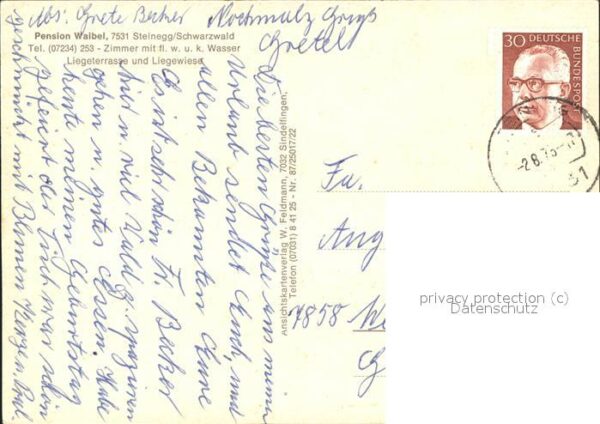 Abs: Grete Becker
Nochmals Gruß
Gretel
Pension Waibel, 7531 Steinegg/Schwarzwald
Tel. (07234) 253 - Zimmer mit fl. w. u. k. Wasser
Liegeterrasse und Liegewiese
Die besten Grüße aus meinem
Urlaub sendet Euch und
allen Bekannten Eure
Fr. Becker
Es ist sehr schön
hier u. viel Wald z. spazieren
gehen u. gutes Essen. Habe
heute meinen Geburtstag
gefeiert der Tisch war schön
geschmückt mit Blumen Kerze u.
Ansichtskartenverlag W. Feldmann, 7032 Sindelfingen,
Telefon (07031) 8 41 25 - Nr. 87/25017/22
30
DEUTSCHE
BUNDESPOST
-2.8.75
Fa.
Ang
4858 W
G
privacy protection (c)
Datenschutz